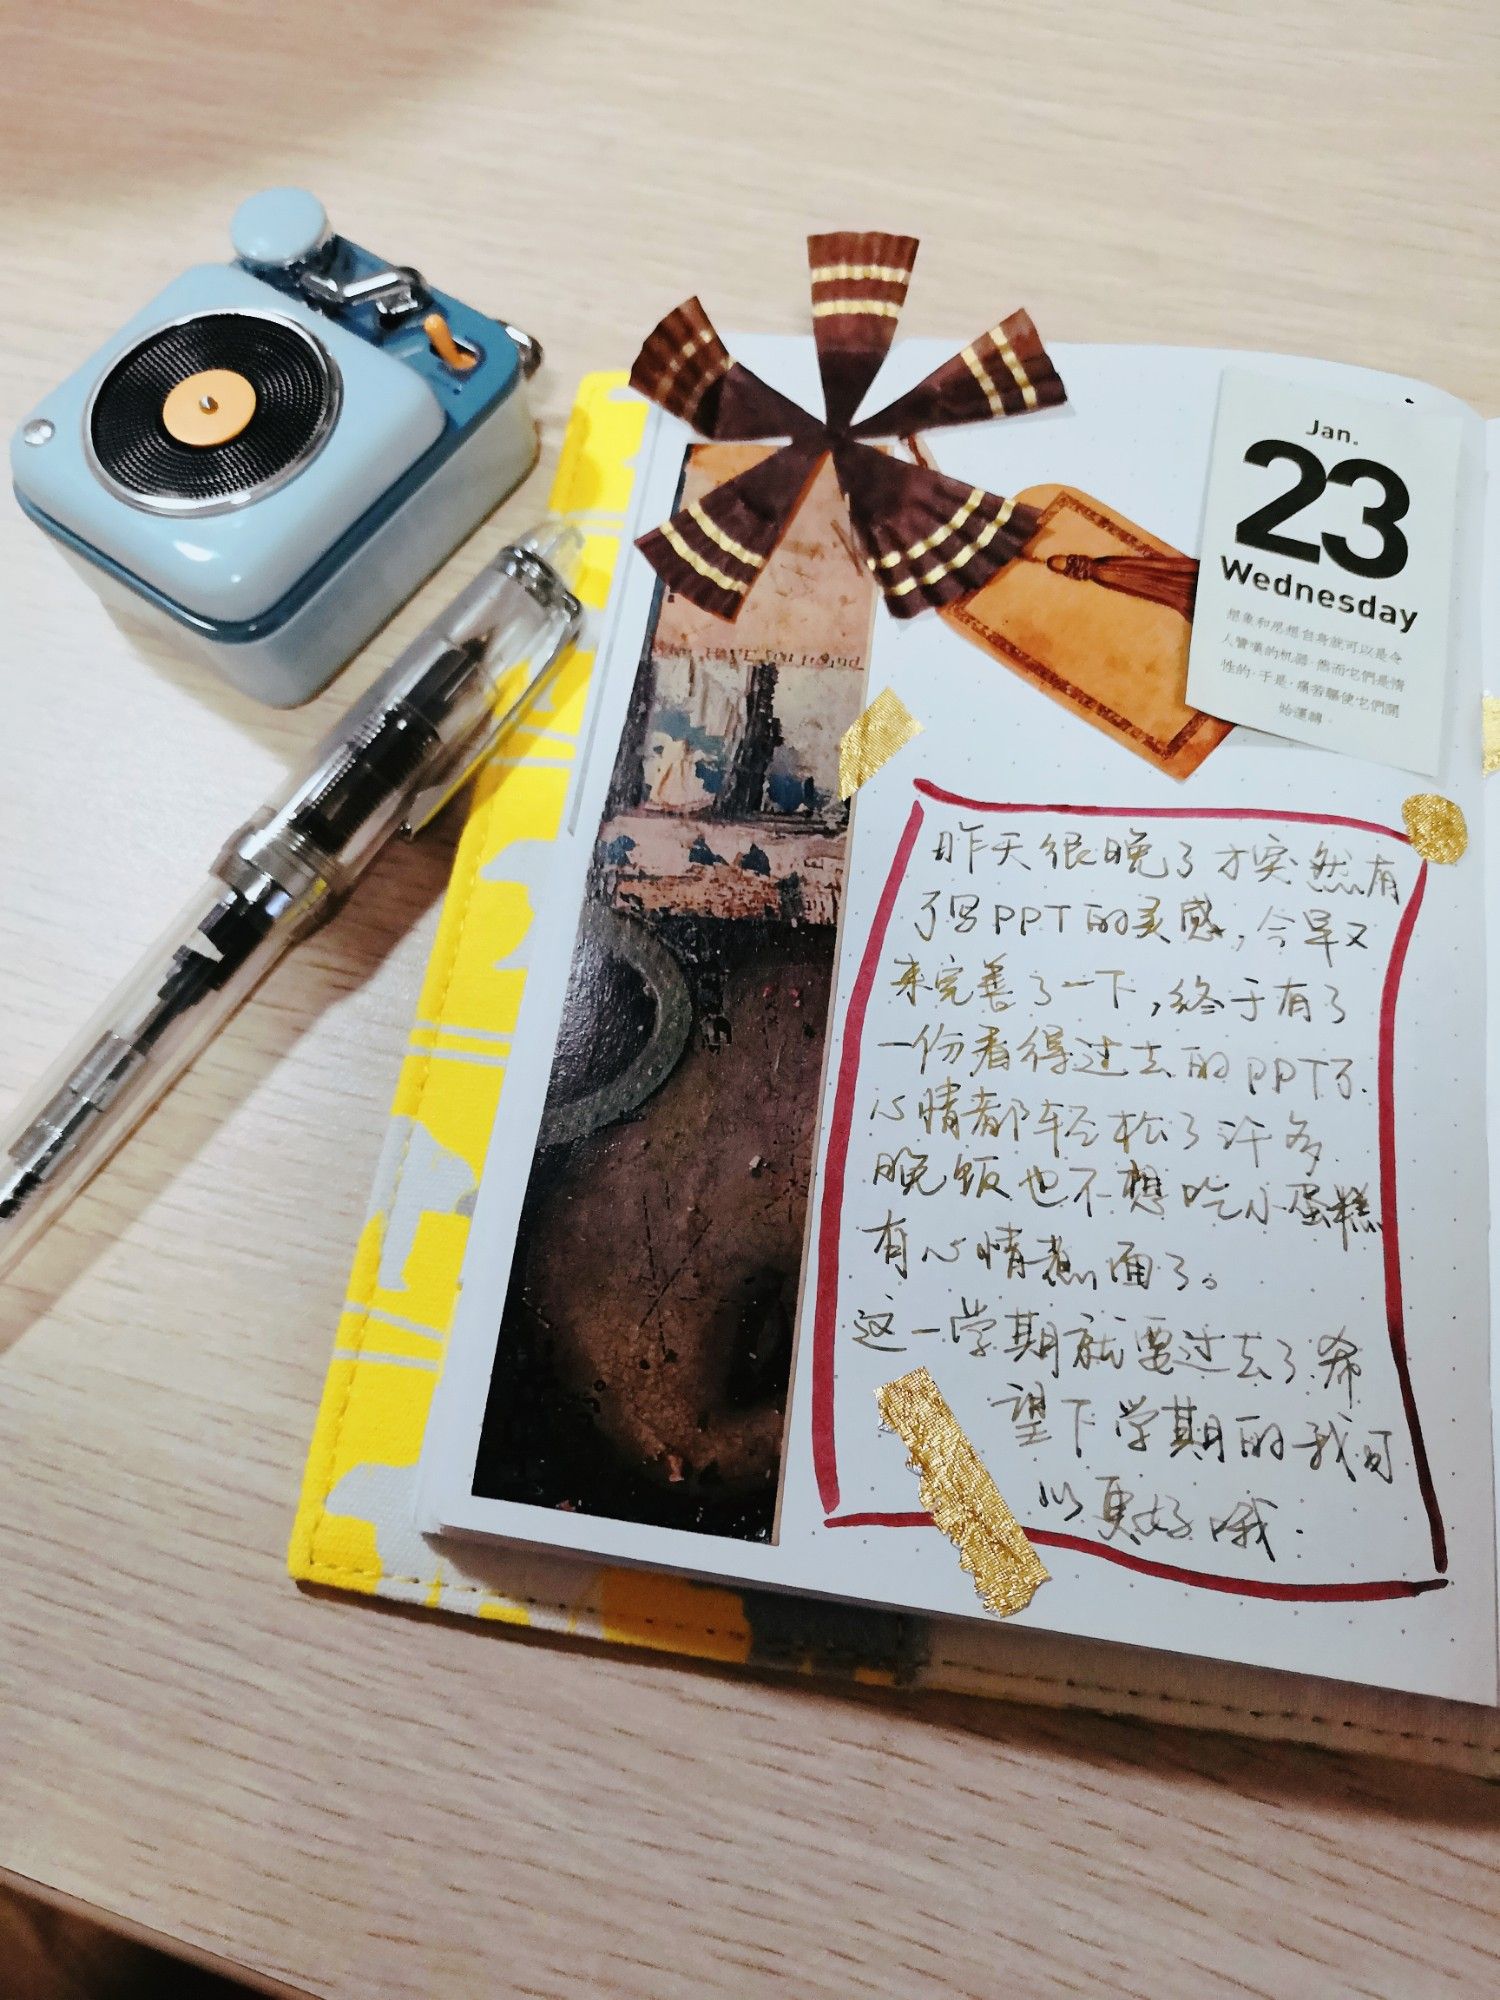 Jan.
23
Wednesday
想象和思想自身就可以是令
人驚嘆的机器·然而它們是惰
性的·于是·痛苦驅使它們開
始運轉·
昨天很晚了才突然有
了写PPT的灵感,今早又
来完善了一下,终于有了
一份看得过去的PPT了.
心情都轻松了许多
晚饭也不想吃小蛋糕
有心情煮面了。
这一学期就要过去了.希
望下学期的我可
以更好哦.